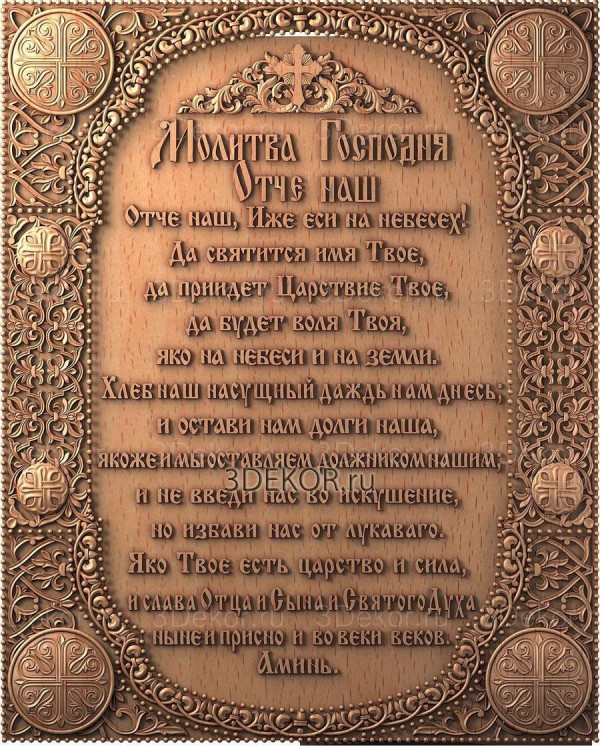 Молитва Господня
Отче наш
Отче наш, Иже еси на небесех!
Да святится имя Твое,
да приидет Царствие Твое,
да будет воля Твоя,
яко на небеси и на земли.
Хлеб наш насущный даждь нам днесь;
и остави нам долги наша,
якоже и мы оставляем должником нашим;
3DEKOR.ru
и не введи нас во искушение,
но избави нас от лукаваго.
Яко Твое есть царство и сила,
и слава Отца и Сына и Святого Духа
ныне и присно и во веки веков.
Аминь.